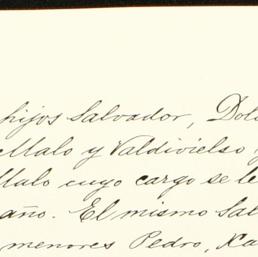 hijos Salvador, Dolo
Malo y Valdivielso
Malo cuyo cargo se le
año. El mismo Sal
menores Pedro, Xa